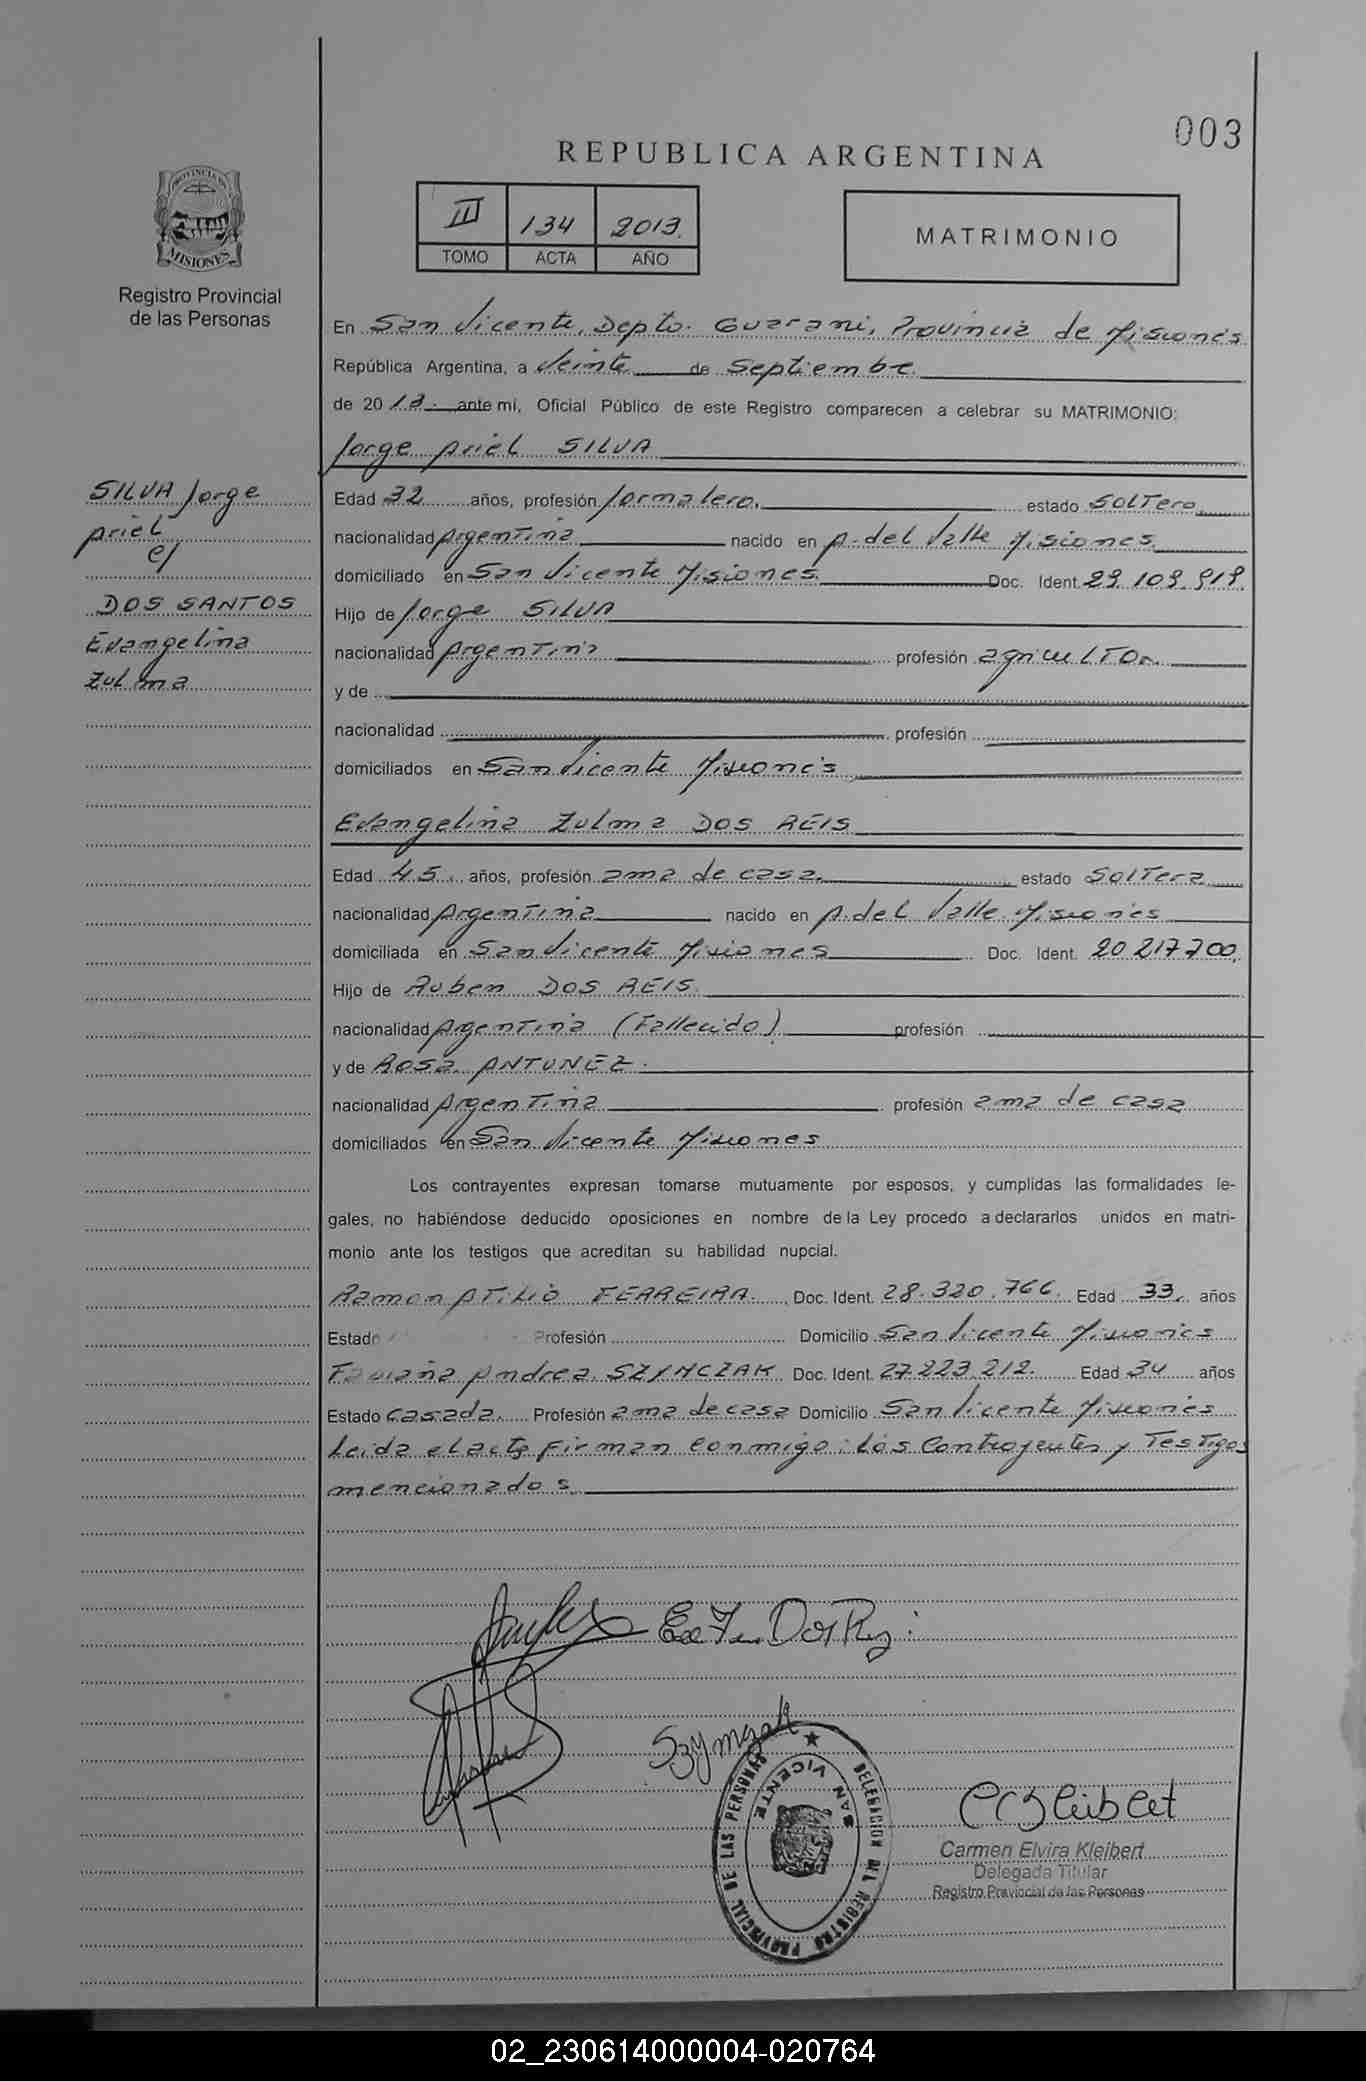 003
REPUBLICA ARGENTINA
PROVINCIA DE
MISIONES
Registro Provincial
de las Personas
III 134 2013.
TOMO ACTA AÑO
MATRIMONIO
En San Vicente, Depto. Guarani, Provincia de Misiones
República Argentina, a Veinte de Septiembre
de 2013. ante mí, Oficial Público de este Registro comparecen a celebrar su MATRIMONIO:
Jorge Ariel SILVA
SILVA Jorge
Ariel
c/
DOS SANTOS
Evangelina
Zulma
Edad 32 años, profesión Jornalero. estado Soltero
nacionalidad Argentina nacido en A. del Valle Misiones
domiciliado en San Vicente Misiones Doc. Ident. 29.109.919.
Hijo de Jorge SILVA
nacionalidad Argentina profesión agricultor
y de
nacionalidad profesión
domiciliados en San Vicente Misiones
Evangelina Zulma DOS REIS
Edad 45. años, profesión ama de casa. estado Soltera
nacionalidad Argentina nacido en A. del Valle Misiones
domiciliada en San Vicente Misiones Doc. Ident. 20 217 700.
Hijo de Ruben DOS REIS.
nacionalidad Argentina (Fallecido) profesión
y de Rosa ANTUNEZ.
nacionalidad Argentina profesión ama de casa
domiciliados en San Vicente Misiones
Los contrayentes expresan tomarse mutuamente por esposos, y cumplidas las formalidades le-
gales, no habiéndose deducido oposiciones en nombre de la Ley procedo a declararlos unidos en matri-
monio ante los testigos que acreditan su habilidad nupcial.
Ramon Atilio FERREIRA. Doc. Ident. 28.320.766. Edad 33. años
Estado Profesión Domicilio San Vicente Misiones
Faviana Andrea SZYMCZAK Doc. Ident. 27.223.212. Edad 34 años
Estado Casada. Profesión ama de casa Domicilio San Vicente Misiones
Leida el acta firman conmigo: Los Contrayentes y Testigos
mencionados
Szymczak
DELEGACION DEL REGISTRO PROVINCIAL DE LAS PERSONAS
SAN VICENTE
Carmen Elvira Kleibert
Delegada Titular
Registro Provincial de las Personas
02_230614000004-020764